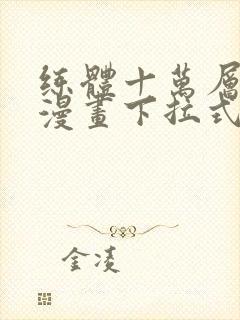 练體十萬層
漫畫下拉式
金凌